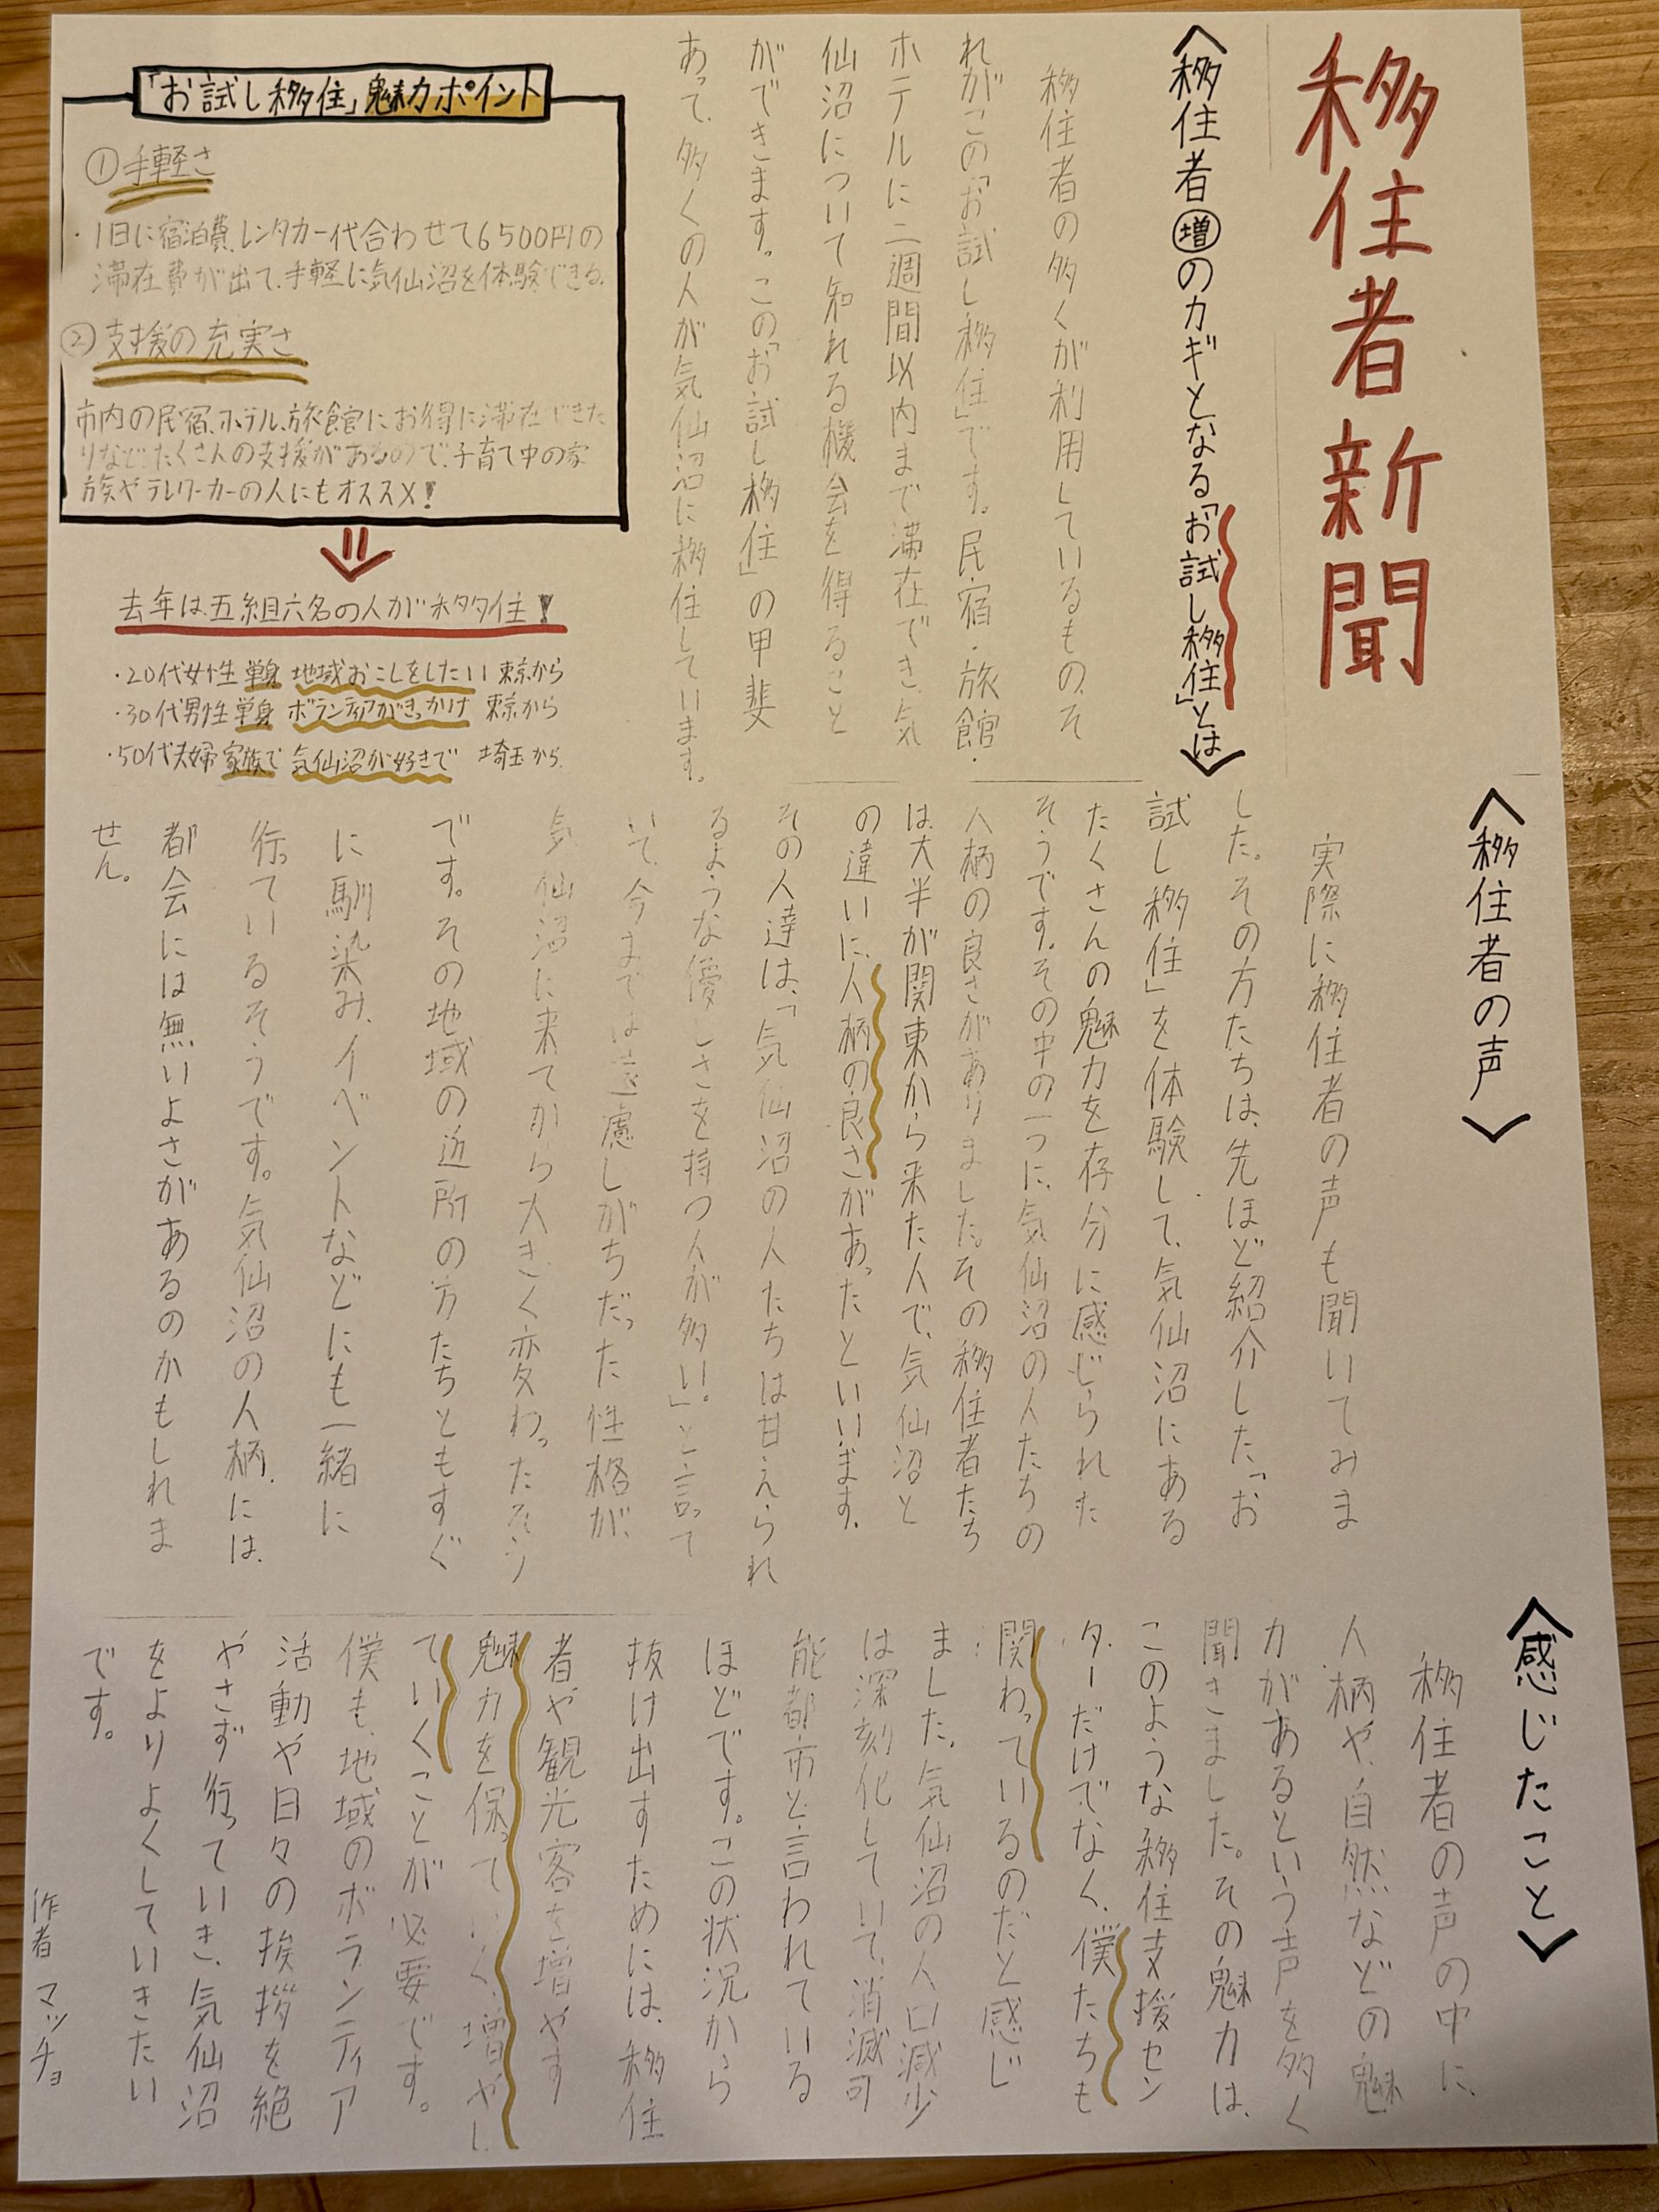 移住者新聞
〈移住者増のカギとなる「お試し移住」とは〉
移住者の多くが利用しているもの、そ
れがこの「お試し移住」です。民宿・旅館・
ホテルに二週間以内まで滞在でき、気
仙沼について知れる機会を得ること
ができます。この「お試し移住」の甲斐
あって、多くの人が気仙沼に移住しています。
「お試し移住」魅力ポイント
①手軽さ
・1日に宿泊費、レンタカー代合わせて6500円の
滞在費が出て、手軽に気仙沼を体験できる。
②支援の充実さ
市内の民宿、ホテル、旅館にお得に滞在できた
りなど、たくさんの支援があるので、子育て中の家
族やテレワーカーの人にもオススメ!
⇓
去年は、五組六名の人が移住!
・20代女性 単身 地域おこしをしたい 東京から
・30代男性 単身 ボランティアがきっかけ 東京から
・50代夫婦 家族で 気仙沼が好きで 埼玉から
〈移住者の声〉
実際に移住者の声も聞いてみま
した。その方たちは、先ほど紹介した、「お
試し移住」を体験して、気仙沼にある
たくさんの魅力を存分に感じられた
そうです。その中の一つに、気仙沼の人たちの
人柄の良さがありました。その移住者たち
は、大半が関東から来た人で、気仙沼と
の違いに、人柄の良さがあったといいます。
その人達は、「気仙沼の人たちは甘えられ
るような優しさを持つ人が多い。」と言って
いて、今までは遠慮しがちだった性格が、
気仙沼に来てから大きく変わったそう
です。その地域の近所の方たちともすぐ
に馴染み、イベントなどにも一緒に
行っているそうです。気仙沼の人柄、には、
都会には無いよさがあるのかもしれま
せん。
〈感じたこと〉
移住者の声の中に、
人柄や、自然などの魅
力があるという声を多く
聞きました。その魅力は、
このような移住支援セン
ターだけでなく、僕たちも
関わっているのだと感じ
ました。気仙沼の人口減少
は深刻化していて、消滅可
能都市と言われている
ほどです。この状況から
抜け出すためには、移住
者や観光客を増やす
魅力を保っていく、増やし
ていくことが必要です。
僕も、地域のボランティア
活動や日々の挨拶を絶
やさず行っていき、気仙沼
をよりよくしていきたい
です。
作者 マッチョ